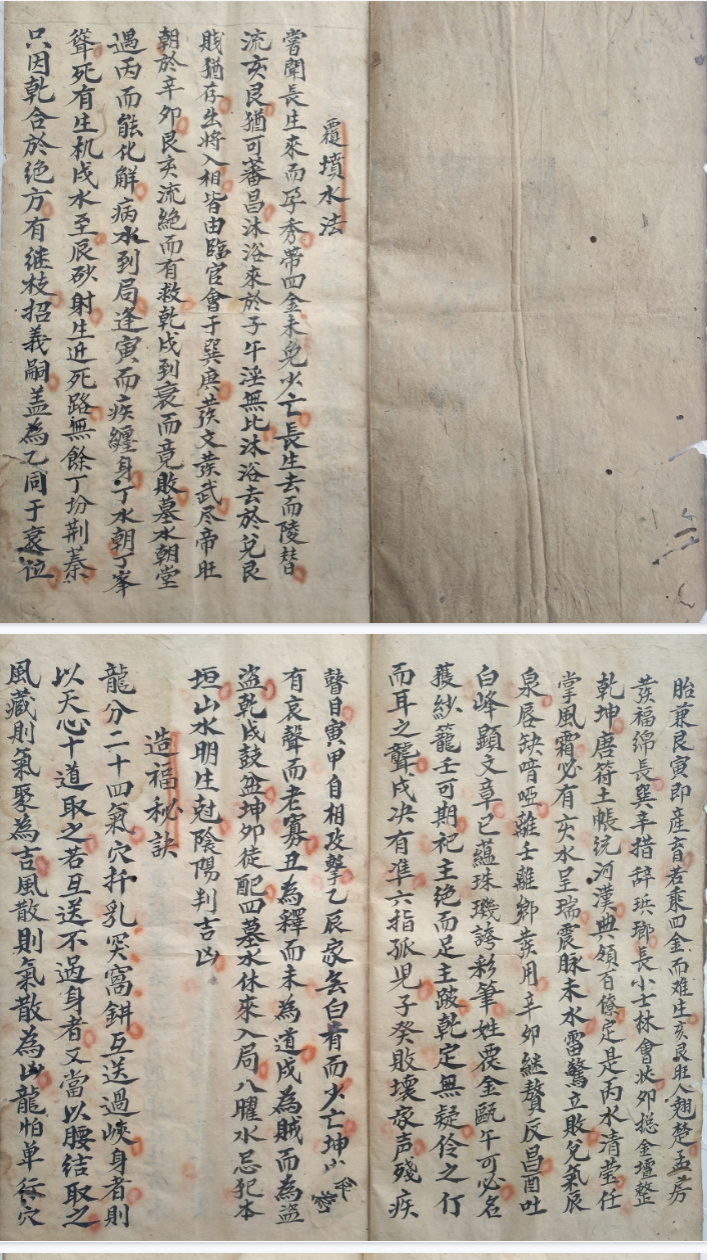 覆墳水法
嘗聞長生來而孕秀帶四金未免少亡長生去而陵替
流亥艮猶可蕃昌沐浴來於子午淫無比沐浴去於兌艮
賎猶存出将入相皆由臨官會于巽庚發文發武尽帝旺
朝於辛卯艮亥流絶而有救乾戌到衰而竟敗墓水朝堂
遇丙而能化解病水到局逢寅而疾纏身丁水朝丁峯
聳死有生机戌水至辰砂射生迯死路無餘丁坋荆蓁
只因乾合於绝方有继枝招義嗣盖為乙同于衰位
胎兼艮寅即産畜若乘四金而难生亥艮旺人翹楚孟房
發福綿長巽辛措辞珎瑯長小士林會状卯揔金壇整
乾坤唐符土帳统河漢典領百僚定是丙水清莹任
掌風霜必有亥水呈瑞震脉未水雷驚立敗兌氣辰
泉唇缺喑啞離壬離鄉發用辛卯继贅反昌酉吐
白峰顕文章已蕴珠璣誇彩筆姓震金甌午可必名
蕿紗籠壬可期祀主绝而足主跛乾定無疑伶之仃
而耳之聾戌决有准六指孤児子癸敗壞家声殘疾
瞽目寅甲自相攻擊乙辰家無白看而少亡坤
有哀聲而老寡丑為釋而未為道戌為賊而為盗
盗乾戌鼓盆坤卯徒配四墓水休來入局八曜水忌犯本
垣山水明生尅陰陽判吉凶
造福秘訣
龍分二十四氣穴扦乳突窩鉗互送過峽身者則
以天心十道取之若互送不過身者又當以腰结取之
風藏則氣聚為吉風散則氣散為凶龍怕单行穴